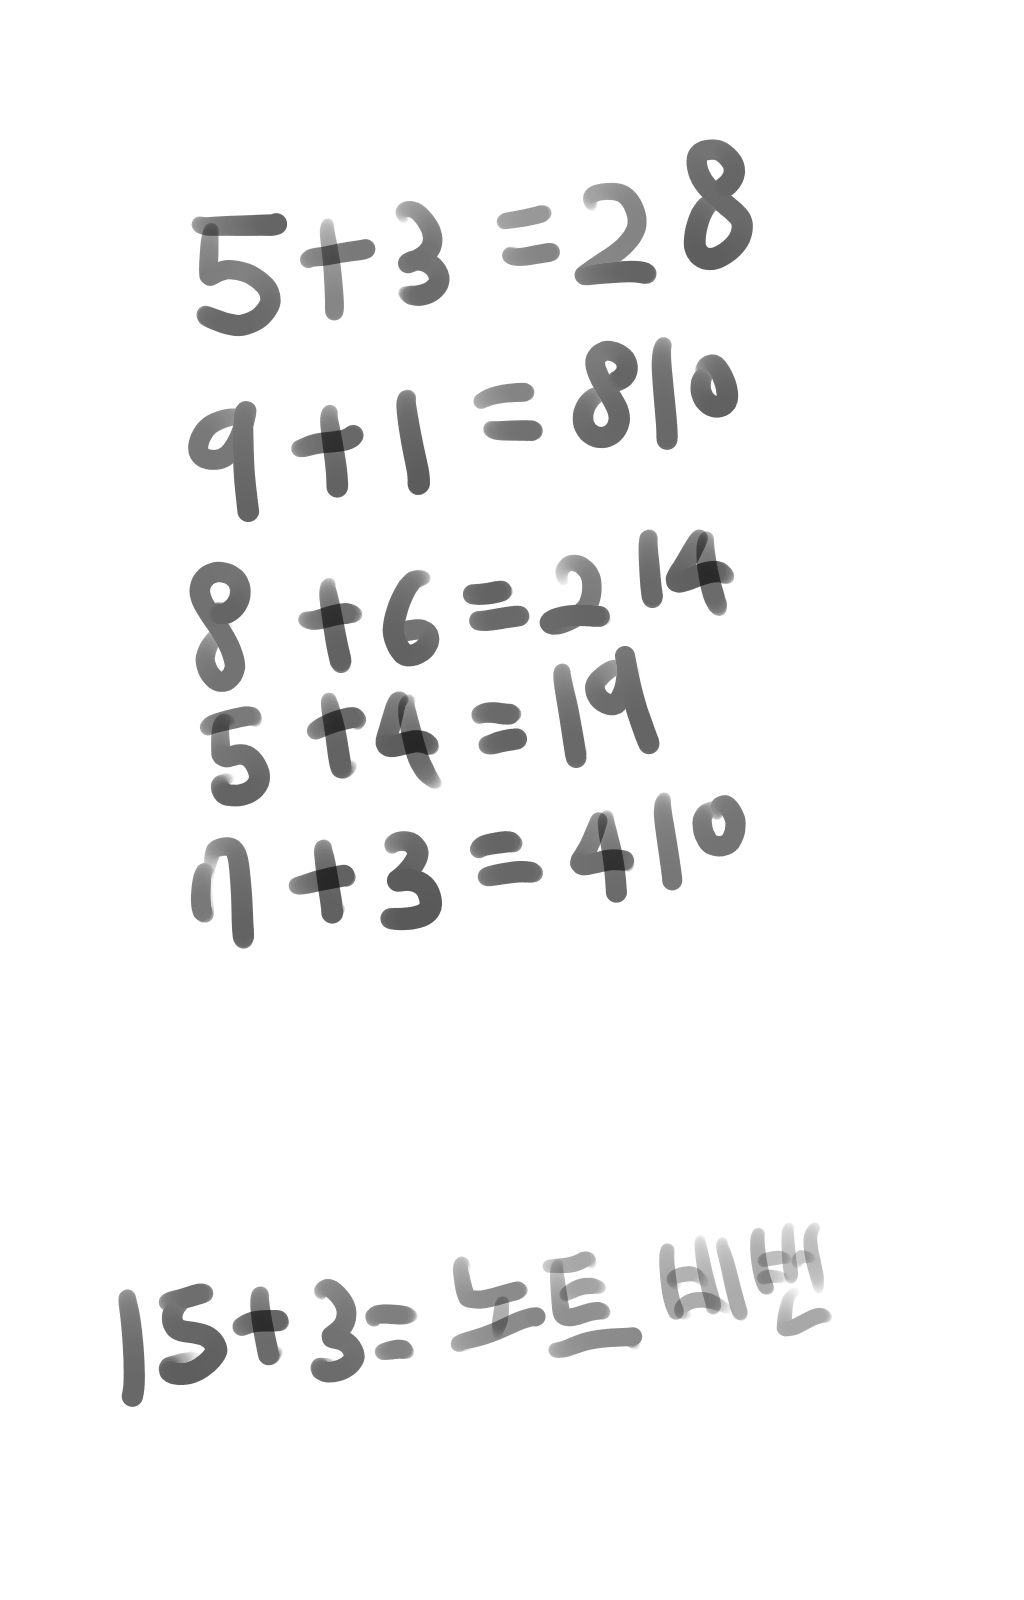 5+3=28
9+1=810
8+6=214
5+4=19
7+3=410
15+3=노트 비번